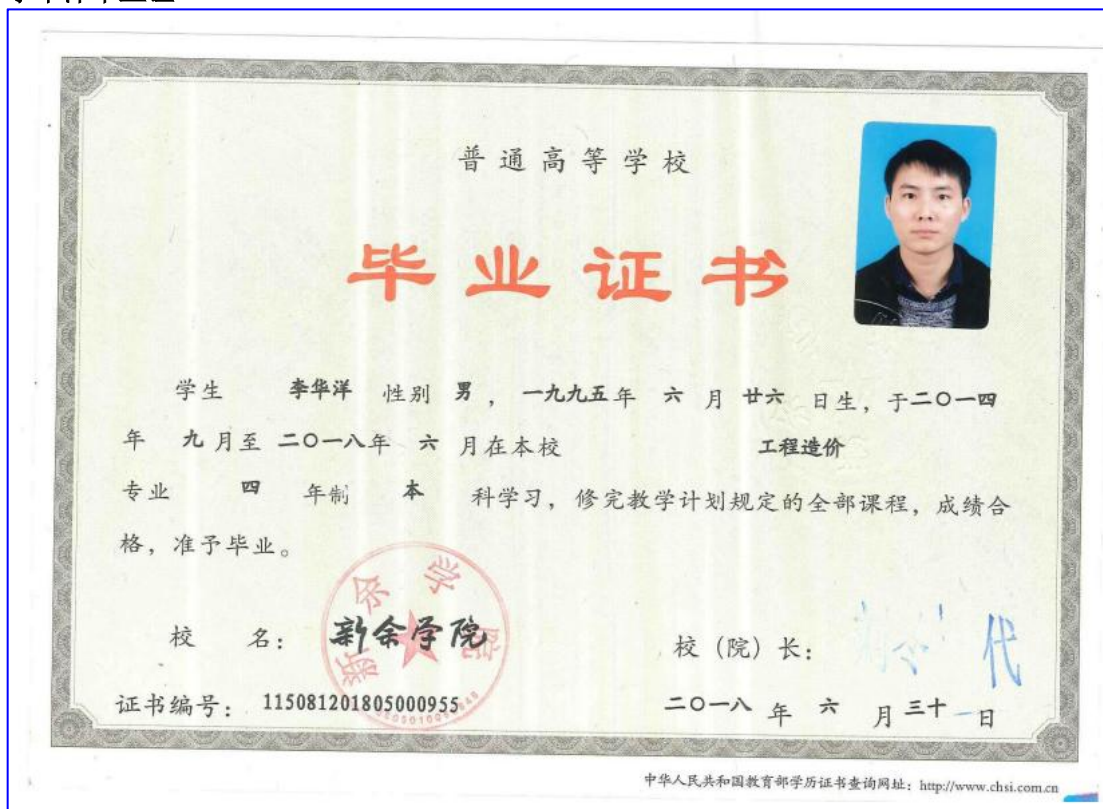 普通高等学校
毕业证书
学生 李华洋 性别 男，一九九五年 六 月 廿六 日生，于二〇一四
年 九月至 二〇一八年 六 月在本校 工程造价
专业 四 年制 本 科学习，修完教学计划规定的全部课程，成绩合
格，准予毕业。
新余学院
校 名：新余学院
校（院）长：
代
证书编号：115081201805000955
二〇一八 年 六 月 三十 日
中华人民共和国教育部学历证书查询网址：http://www.chsi.com.cn